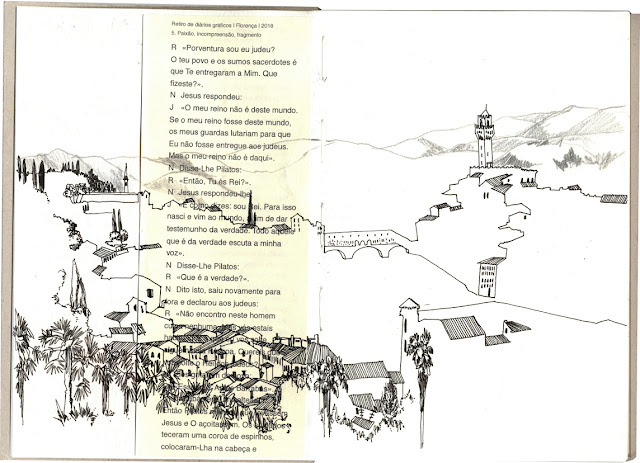 Retiro de diários gráficos | Florença | 2018
5. Paixão, incompreensão, fragmento
R «Porventura sou eu judeu?
O teu povo e os sumos sacerdotes é
que Te entregaram a Mim. Que
fizeste?».
N Jesus respondeu:
J «O meu reino não é deste mundo.
Se o meu reino fosse deste mundo,
os meus guardas lutariam para que
Eu não fosse entregue aos judeus.
Mas o meu reino não é daqui».
N Disse-Lhe Pilatos:
R «Então, Tu és Rei?».
N Jesus respondeu-lhe
J «É como dizes: sou Rei. Para isso
nasci e vim ao mundo, a fim de dar
testemunho da verdade. Todo aquele
que é da verdade escuta a minha
voz».
N Disse-Lhe Pilatos:
R «Que é a verdade?».
N Dito isto, saiu novamente para
fora e declarou aos judeus:
R «Não encontro neste homem
Jesus e O
teceram uma coroa de espinhos,
colocaram-Lha na cabeça e